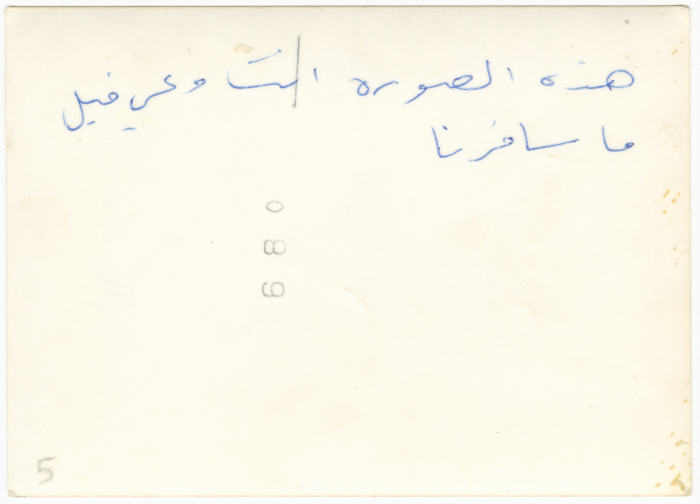 هذه الصوره انت وعمي قبل
ما سافرنا
089
5